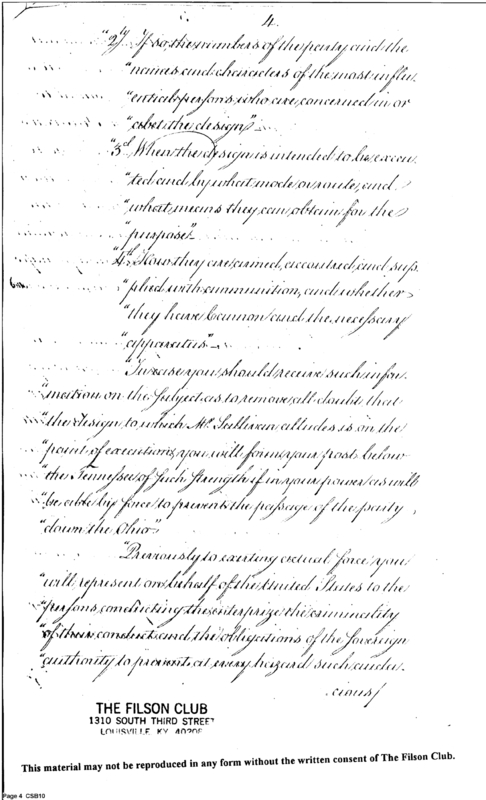 4.
"2dy If so, the numbers of the party and the
"names and characters of the most influ
"ential persons, who are concerned in or
"abet the design" –
"3d When the design is intended to be execu
"ted and by what mode or route, and
"what means they can obtain for the
"purpose" –
"4th How they are armed, accoutred, and sup
6m.
"plied with ammunition, and whether
"they have Cannon and the necessary
"apparatus" –
"In case you should receive such infor
"mation on the subject as to remove all doubt that
"the design to which Mr. Sullivan alludes is on the
"point of execution, you will form your post below
"the Tennessee of such strength if in your power as will
"be able by force to prevent the passage of the party
"down the Ohio"
"Previously to exerting actual force you
"will represent on behalf of the United States to the
"persons conducting the enterprize the criminality
"of their conduct and the obligations of the Sovereign
"authority to prevent at every hazard such auda
cious/
THE FILSON CLUB
1310 SOUTH THIRD STREET
LOUISVILLE, KY 40208
This material may not be reproduced in any form without the written consent of The Filson Club.
Page 4 CSB10